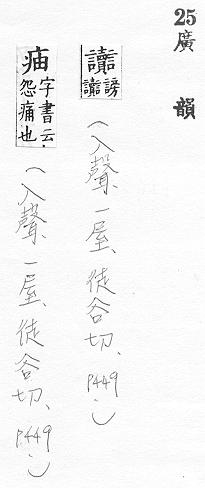 25 廣韻
讟謗讟（入聲、一屋、徒谷切、p.449.）
字書云怨痛也（入聲、一屋、徒谷切、p.449.）